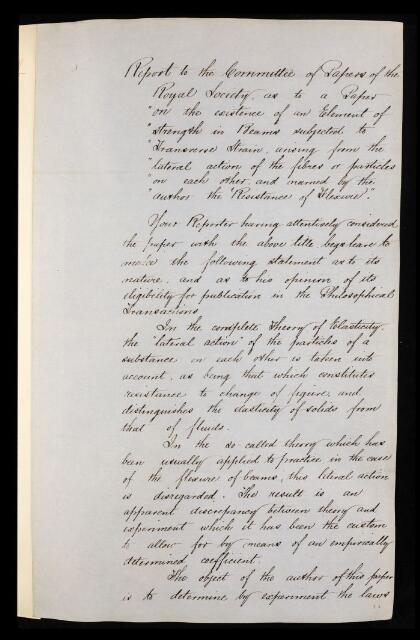 Report to the Committee of Papers of the
Royal Society, as to a Paper
"on the existence of an Element of
"Strength in Beams subjected to
"Transverse Strain, arising from the
"lateral action of the fibres or particles
"on each other, and named by the
"author the Resistance of Flexure".
Your Reporter having attentively considered
the paper with the above title begs leave to
make the following statement as to its
nature, and as to his opinion of its
eligibility for publication in the Philosophical
Transactions
In the complete Theory of Elasticity,
the "lateral action" of the particles of a
substance on each other is taken into
account, as being that which constitutes
resistance to change of figure, and
distinguishes the elasticity of solids from
that of fluids.
In the so-called theory which has
been usually applied to practice in the case
of the flexure of beams, this literal action
is disregarded. The result is an
apparent discrepancy between theory and
experiment which it has been the custom
to allow for by means of an empirically
determined coefficient.
The object of the author of this paper
is to determine by experiment the laws